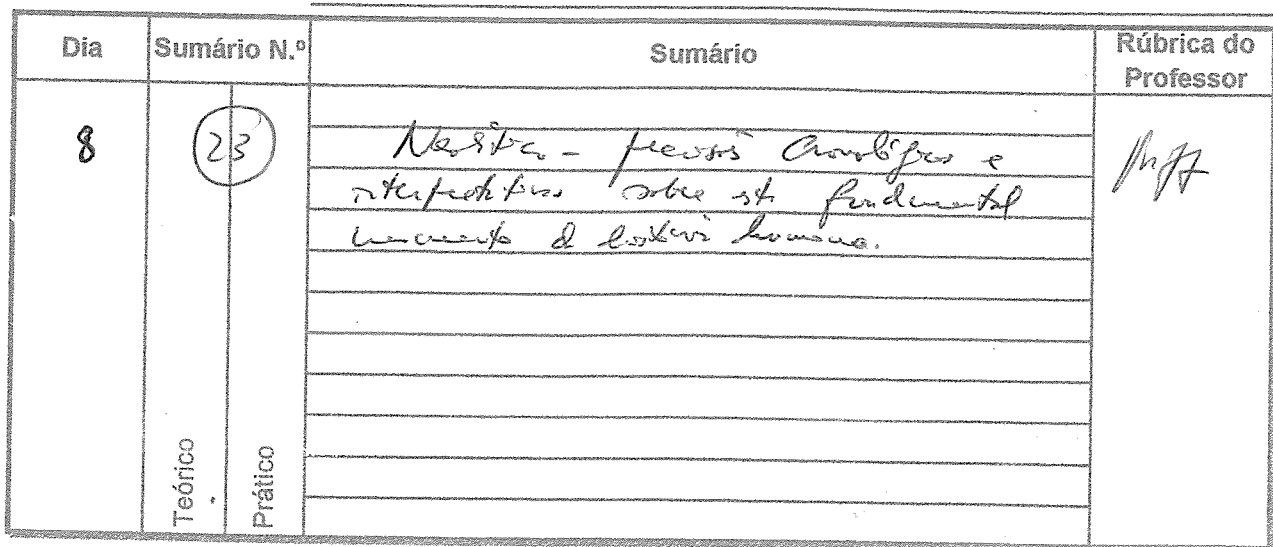 Dia Sumário N.º Sumário Rúbrica do Professor
8 23 Neolítico - precisões cronológicas e
interpretativas sobre este fundamental
momento da história humana.
Teórico Prático